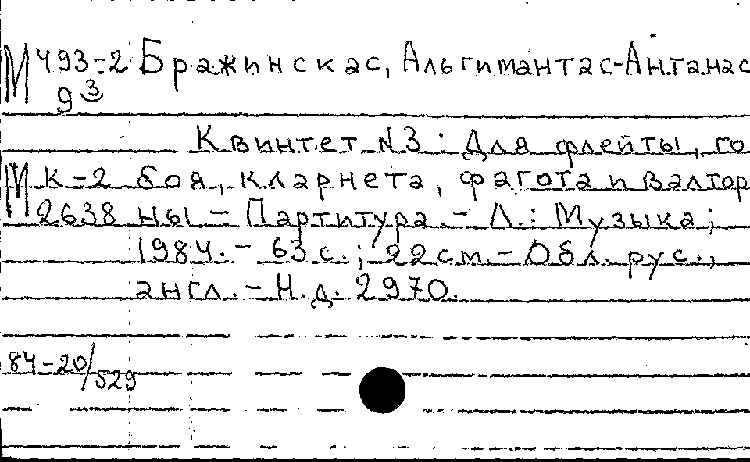 М 493-2 Бражинскас, Альгимантас-Антанас
93
Квинтет №3 : Для флейты, го
М К-2 боя, кларнета, фагота и валтор
2638 ны - Партитура. - Л. : Музыка ;
1984. - 63 с. ; 22 см. - Обл. рус.,
англ. - Н.д. 2970.
84-20/529